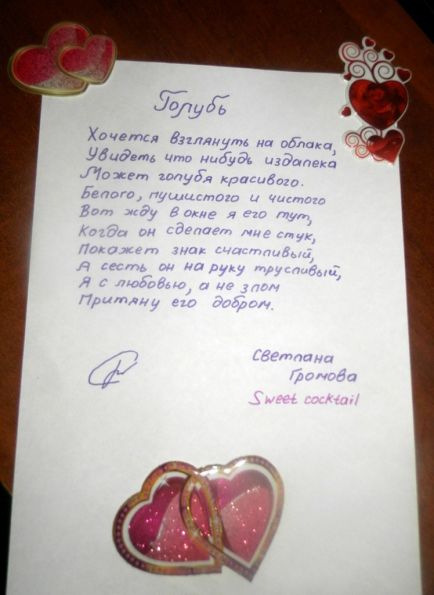 Голубь
Хочется взглянуть на облака,
Увидеть что нибудь издалека
Может голубя красивого.
Белого, пушистого и чистого
Вот жду в окне я его тут,
Когда он сделает мне стук,
Покажет знак счастливый,
А сесть он на руку трусливый,
Я с любовью, а не злом
Притяну его добром.
Светлана
Громова
Sweet cocktail